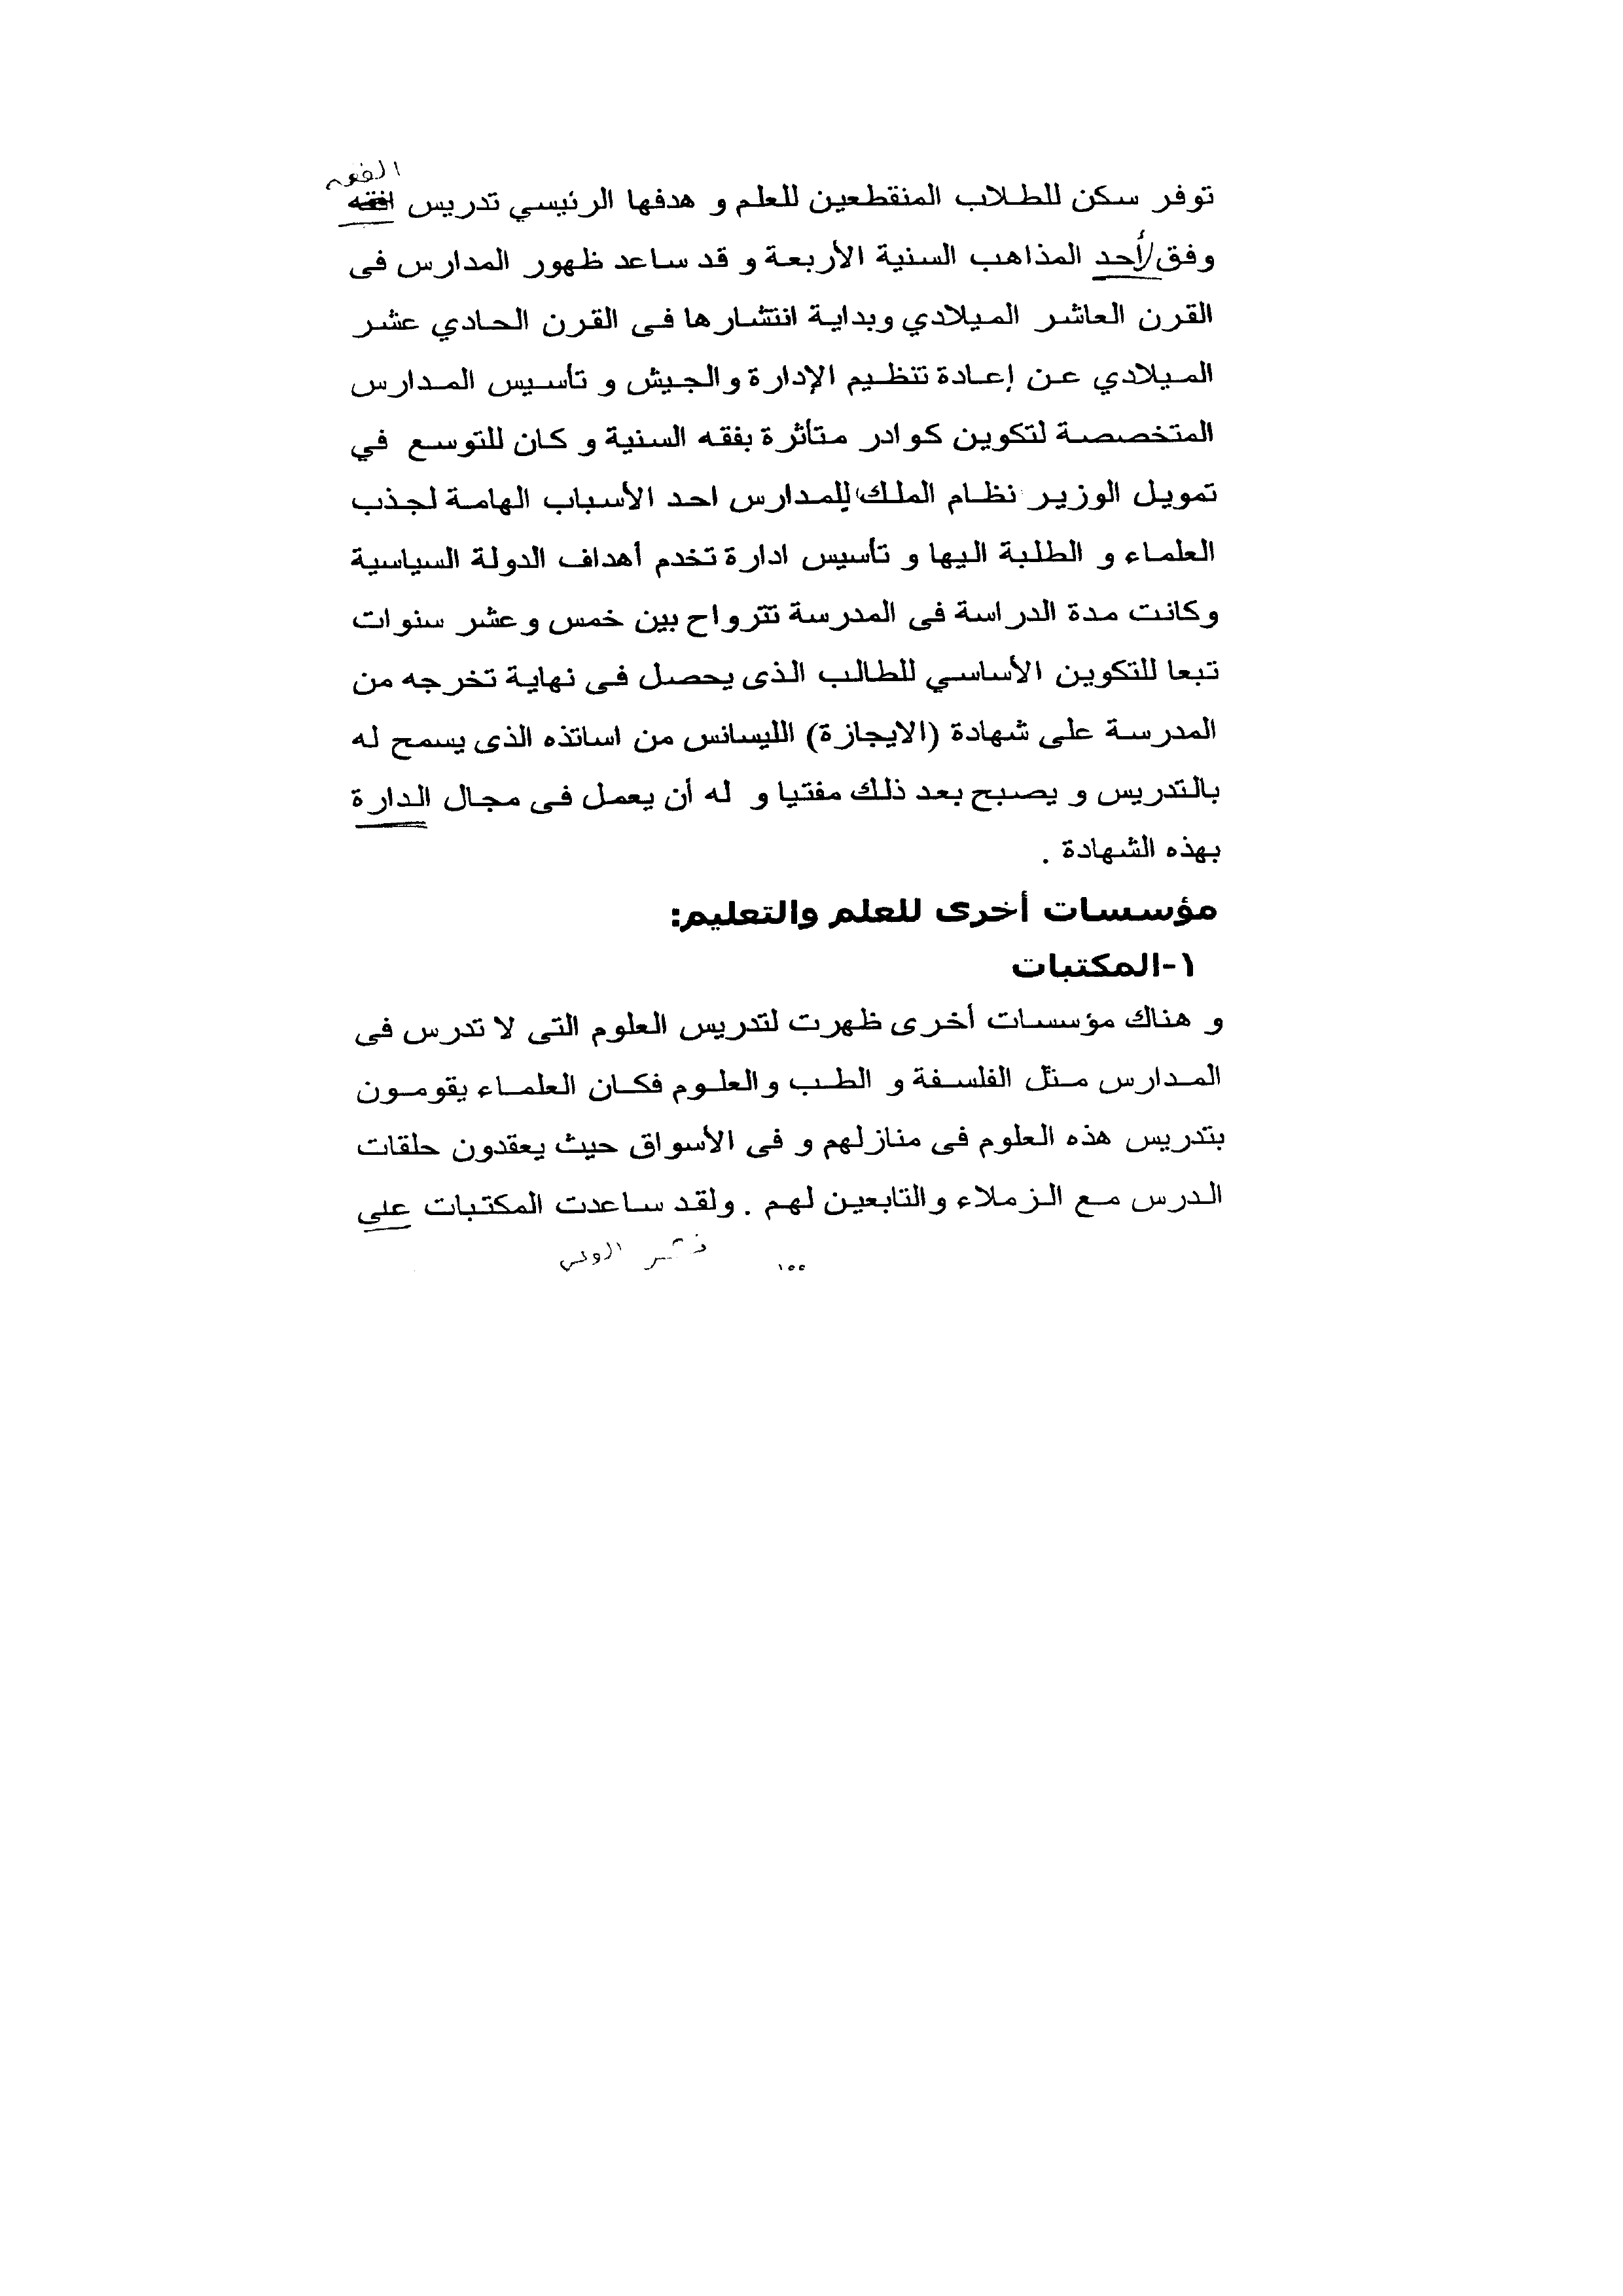 الفقه
توفر سكن للطلاب المنقطعين للعلم و هدفها الرئيسي تدريس افقه
وفق أحد المذاهب السنية الأربعة و قد ساعد ظهور المدارس فى
القرن العاشر الميلادي وبداية انتشارها فى القرن الحادي عشر
الميلادي عن إعادة تنظيم الإدارة والجيش و تأسيس المدارس
المتخصصة لتكوين كوادر متأثرة بفقه السنية و كان للتوسع في
تمويل الوزير نظام الملك للمدارس احد الأسباب الهامة لجذب
العلماء و الطلبة اليها و تأسيس ادارة تخدم أهداف الدولة السياسية
وكانت مدة الدراسة فى المدرسة تترواح بين خمس وعشر سنوات
تبعا للتكوين الأساسي للطالب الذى يحصل فى نهاية تخرجه من
المدرسة على شهادة (الايجازة) الليسانس من اساتذه الذى يسمح له
بالتدريس و يصبح بعد ذلك مفتيا و له أن يعمل فى مجال الدارة
بهذه الشهادة .
مؤسسات أخرى للعلم والتعليم:
١-المكتبات
و هناك مؤسسات أخرى ظهرت لتدريس العلوم التى لا تدرس فى
المدارس مثل الفلسفة و الطب والعلوم فكان العلماء يقومون
بتدريس هذه العلوم فى منازلهم و فى الأسواق حيث يعقدون حلقات
الدرس مع الزملاء والتابعين لهم . ولقد ساعدت المكتبات على
نشر الوعى